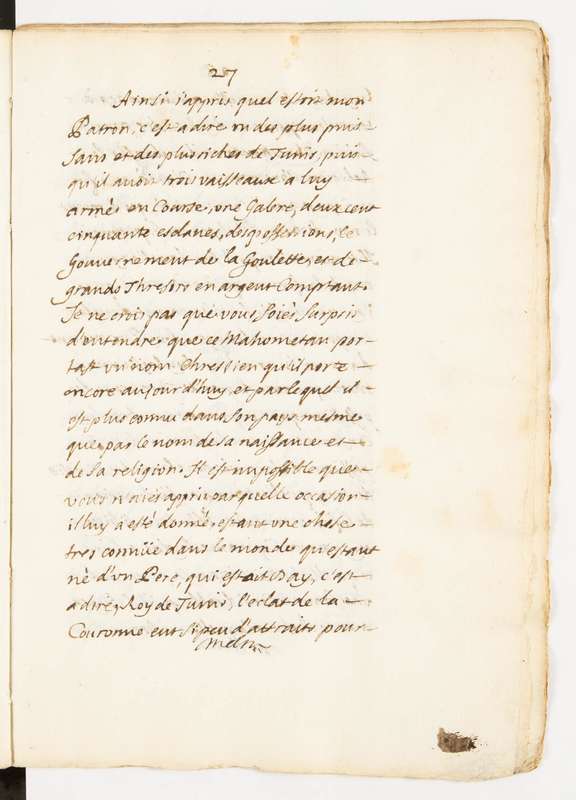 27
Ainsi i'appris quel estoit mon
Patron, c'est a dire un des plus puis-
sans et des plus riches de Tunis, puis-
qu'il avoit trois vaisseaux a luy
armés en Course, une Galere, deux cent
cinquante esclaves, des possessions, le
Gouvernement de la Goulette, et de
grands Thresors en argent Comptant.
Je ne crois pas que vous soiés surpris
d'entendre que ce Mahometan por-
tast un nom Chrestien qu'il porte
encore aujourd'huy, et par lequel il
est plus connu dans son pays mesme
que par le nom de sa naissance et
de sa religion. Il est impossible que
vous n'aiés appris par quelle occasion
il luy a esté donné, estant une chose
tres connüe dans le monde qu'estant
né d'un Pere, qui estait Day, c'est
a dire, Roy de Tunis, l'eclat de la
Couronne eut si peu d'attraits pour